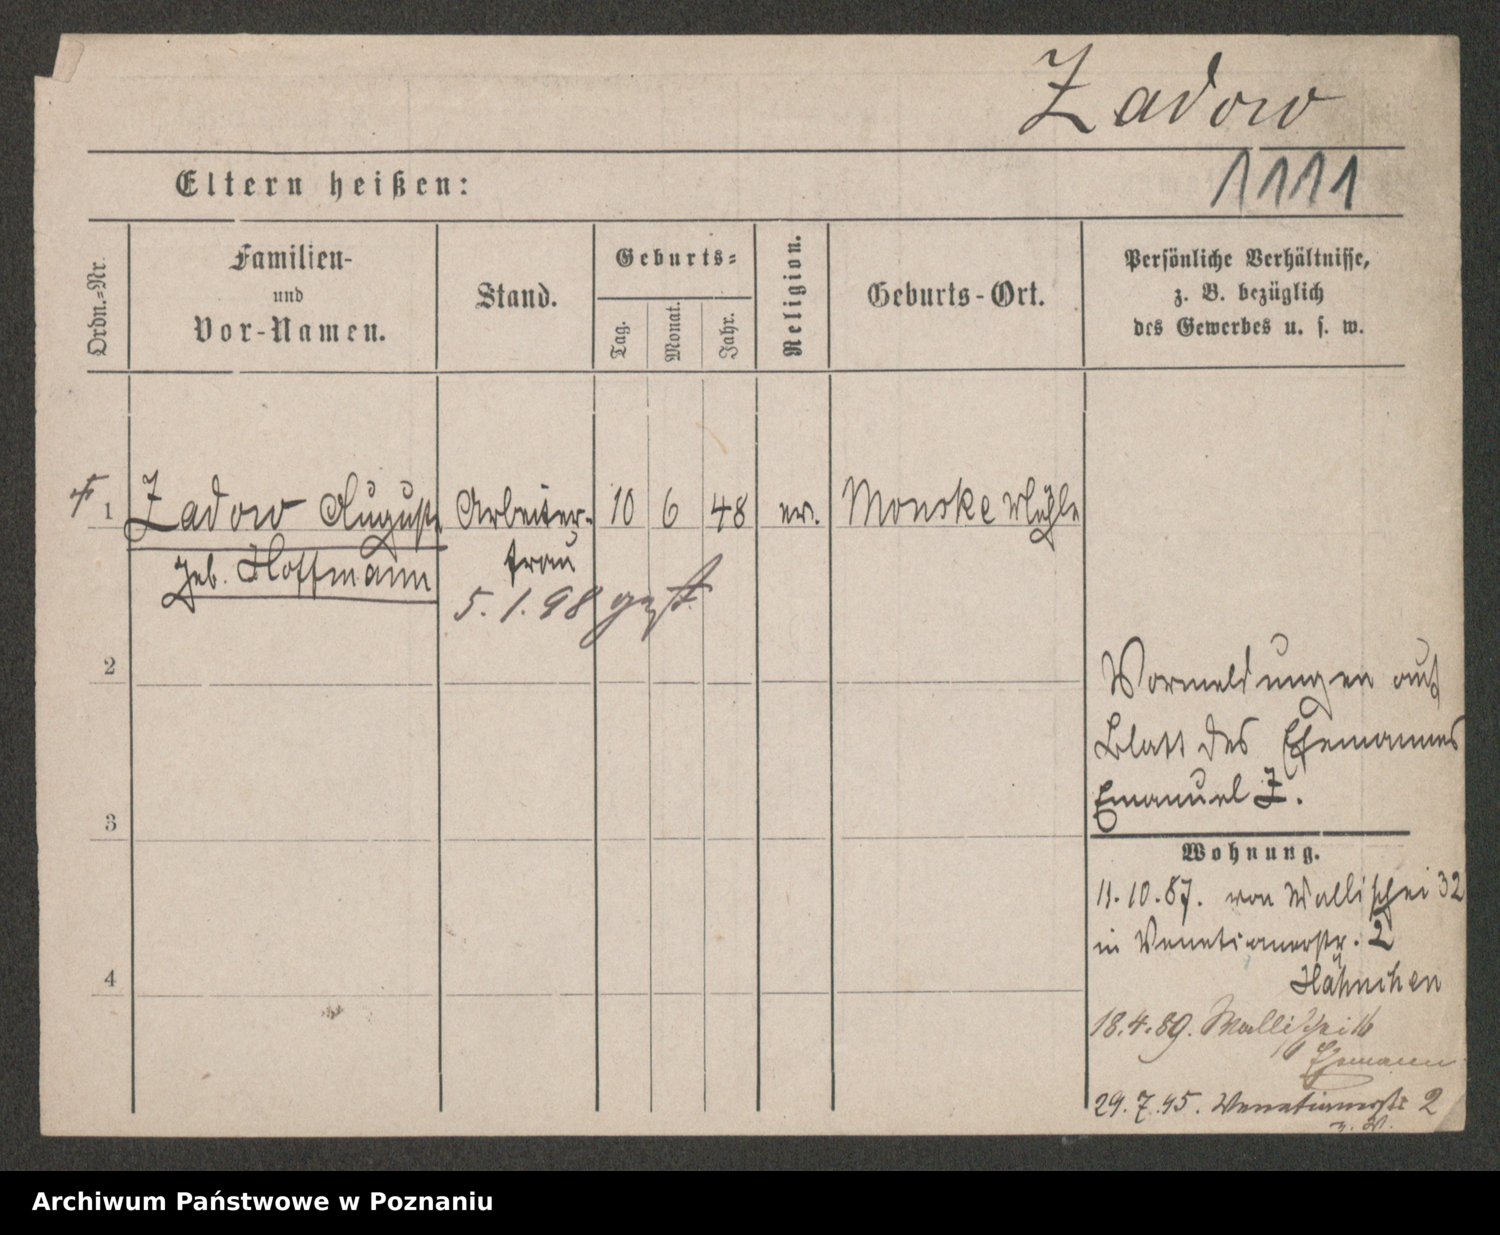 Zadow
1111
Eltern heißen:
Ordn.=Nr.
Familien-
und
Vor-Namen.
Stand.
Geburts=
Tag.
Monat.
Jahr.
Religion.
Geburts-Ort.
Persönliche Verhältnisse,
z. B. bezüglich
des Gewerbes u. s. w.
1 Zadow Auguste Arbeiter- 10 6 48 ev. Monske Mühle
geb. Hoffmann frau
5.1.98 gest.
2
Vormeldungen auf
Blatt des Ehemannes
Emanuel Z.
3
Wohnung.
11.10.87. von Wallischei 32
in Venetianerstr. 2
Hähnchen
4
18.4.89. Wallischei 16
Ehemann
29.7.95. Venetianerstr 2